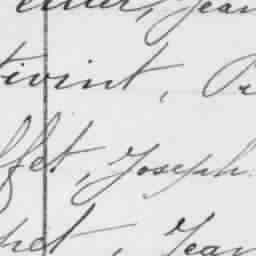 , Jean
tivint, Pr
ffet, Joseph
het, Jean